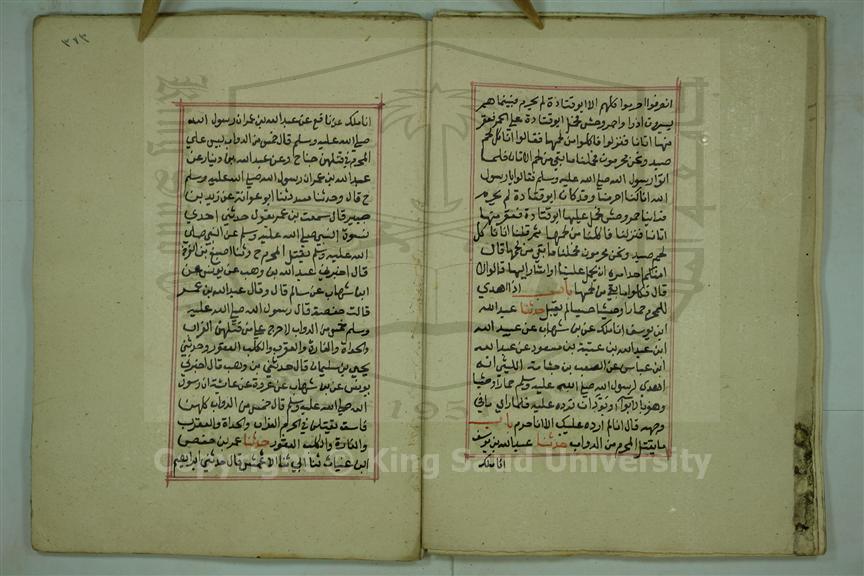 انصرفوا احرموا كلهم الا ابو قتادة لم يحرم فبينما هم
يسيرون اذ راوا حمر وحش فحمل ابو قتادة على الحمر فعقر
منها اتانا فنزلوا فاكلوا من لحمها فقالوا اناكل لحم
صيد ونحن محرمون فحملنا ما بقي من لحم الاتان فلما
اتوا رسول الله صلى الله عليه وسلم فقالوا يا رسول
الله انا كنا احرمنا وقد كان ابو قتادة لم يحرم
فراينا حمر وحش فحمل عليها ابو قتادة فعقر منها
اتانا فنزلنا فاكلنا من لحمها ثم قلنا اناكل
لحم صيد ونحن محرمون فحملنا ما بقي من لحمها قال
امنكم احد امره ان يحمل عليها او اشار اليها قالوا لا
قال فكلوا ما بقي من لحمها باب اذا اهدي
للمحرم حمارا وحشيا حيا لم يقبل حدثنا عبد الله
ابن يوسف انا ملك عن بن شهاب عن عبيد الله
ابن عبد الله بن عتبة بن مسعود عن عبد الله
ابن عباس عن الصعب بن جثامة الليثي انه
اهدى لرسول الله صلى الله عليه وسلم حمارا وحشيا
وهو بالابواء او بودان فرده عليه فلما راى ما في
وجهه قال انا لم نرده عليك الا انا حرم باب
ما يقتل المحرم من الدواب حدثنا عبد الله بن يوسف
انا ملك
٣٧٣
انا ملك عن نافع عن عبد الله بن عمر ان رسول الله
صلى الله عليه وسلم قال خمس من الدواب ليس على
المحرم في قتلهن جناح ح وعن عبد الله ابن دينار عن
عبد الله بن عمر ان رسول الله صلى الله عليه وسلم
ح قال وحدثنا مسدد ثنا ابو عوانة عن زيد بن
جبير قال سمعت بن عمر يقول حدثتني احدي
نسوة النبي صلى الله عليه وسلم عن النبي صلى
الله عليه وسلم يقتل المحرم ح وثنا اصبغ بن الفرج
قال اخبرني عبد الله بن وهب عن يونس عن
ابن شهاب عن سالم قال وقال عبد الله بن عمر
قالت حفصة قال رسول الله صلى الله عليه
وسلم خمس من الدواب لا حرج على من قتلهن الغراب
والحداة والفارة والعقرب والكلب العقور وحدثني
يحيى بن سليمان قال حدثني بن وهب قال اخبرني
يونس عن بن شهاب عن عروة عن عائشة ان رسول
الله صلى الله عليه وسلم قال خمس من الدواب كلهن
فاسق يقتلن في الحرم الغراب والحداة والعقرب
والفارة والكلب العقور حدثنا عمر بن حفص
ابن غياث ثنا ابي ثنا الاعمش قال حدثني ابراهيم
Copyright © King Saud University
1957